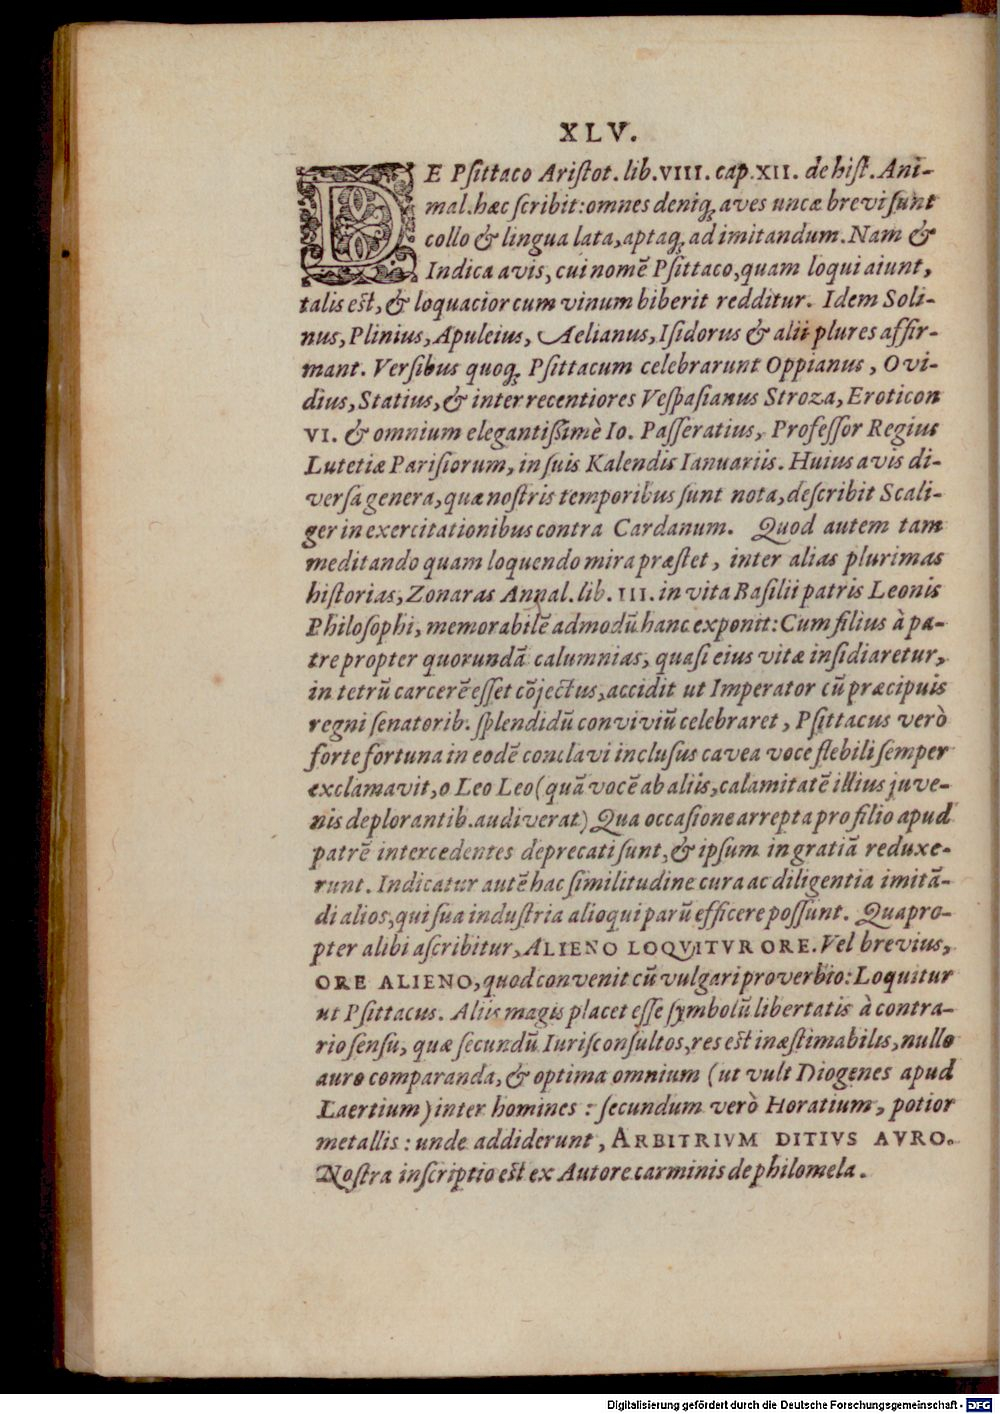 XLV.
DE Psittaco Aristot. lib. VIII. cap. XII. de hist. Ani-
mal. hæc scribit: omnes deniqꝫ aves uncæ brevi sunt
collo & lingua lata, aptaqꝫ ad imitandum. Nam &
Indica avis, cui nomē Psittaco, quam loqui aiunt,
talis est, & loquacior cum vinum biberit redditur. Idem Soli-
nus, Plinius, Apuleius, Aelianus, Isidorus & alii plures affir-
mant. Versibus quoqꝫ Psittacum celebrarunt Oppianus, Ovi-
dius, Statius, & inter recentiores Vespasianus Stroza, Eroticon
VI. & omnium elegantissimè Io. Passeratius, Professor Regius
Lutetiæ Parisiorum, in suis Kalendis Ianuariis. Huius avis di-
versa genera, quæ nostris temporibus sunt nota, describit Scali-
ger in exercitationibus contra Cardanum. Quod autem tam
meditando quam loquendo mira præstet, inter alias plurimas
historias, Zonaras Annal. lib. III. in vita Basilii patris Leonis
Philosophi, memorabilē admodū hanc exponit: Cum filius à pa-
tre propter quorundā calumnias, quasi eius vitæ insidiaretur,
in tetrū carcerē esset cōjectus, accidit ut Imperator cū præcipuis
regni senatorib. splendidū conviviū celebraret, Psittacus verò
forte fortuna in eodē conclavi inclusus cavea voce flebili semper
exclamavit, o Leo Leo (quā vocē ab aliis, calamitatē illius juve-
nis deplorantib. audiverat) Qua occasione arrepta pro filio apud
patrē intercedentes deprecati sunt, & ipsum in gratiā reduxe-
runt. Indicatur autē hac similitudine cura ac diligentia imitā-
di alios, qui sua industria alioqui parū efficere possunt. Quapro-
pter alibi ascribitur, ALIENO LOQVITVR ORE. Vel brevius,
ORE ALIENO, quod convenit cū vulgari proverbio: Loquitur
ut Psittacus. Aliis magis placet esse symbolū libertatis à contra-
rio sensu, quæ secundū Iurisconsultos, res est inæstimabilis, nullo
auro comparanda, & optima omnium (ut vult Diogenes apud
Laertium) inter homines : secundum verò Horatium, potior
metallis : unde addiderunt, ARBITRIVM DITIVS AVRO.
Nostra inscriptio est ex Autore carminis de philomela.
Digitalisierung gefördert durch die Deutsche Forschungsgemeinschaft - DFG